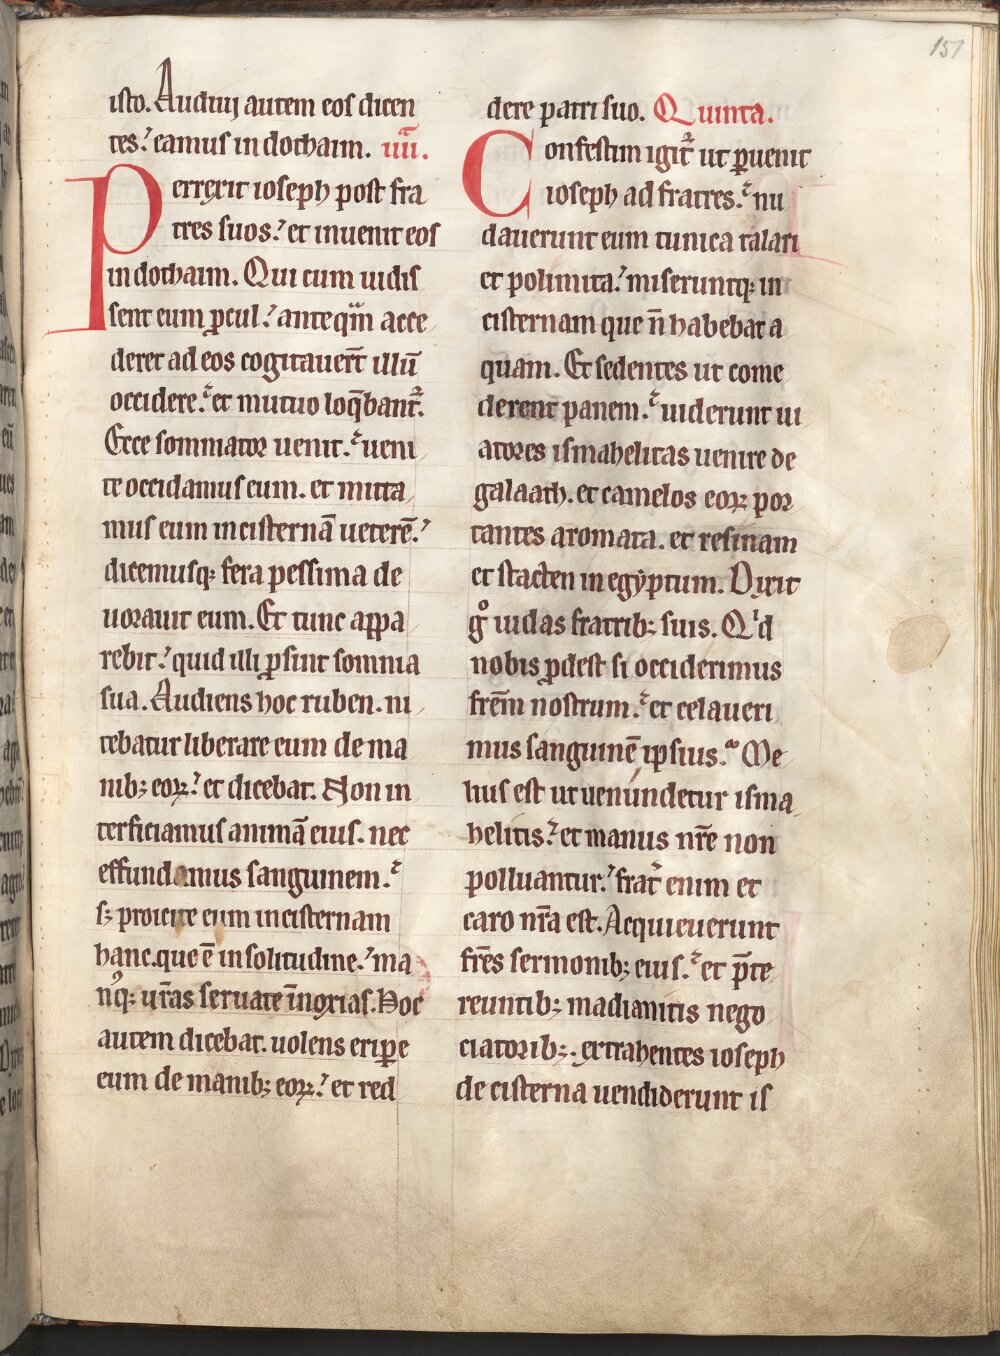 151
isto. Audiui autem eos dicen
tes. eamus in dothaim. iiii.
Perrexit ioseph post fra
tres suos. et inuenit eos
in dothaim. Qui cum uidis
sent eum ꝓcul. anteq̄m acce
deret ad eos cogitauer̄t illū
occidere. et mutuo loq̄bant᷑.
Ecce somniator uenit. ueni
te occidamus eum. et mitta
mus eum in cisternā ueterē.
dicemusqꝫ fera pessima de
uorauit eum. Et tunc appa
rebit. quid illi ꝓsint somnia
sua. Audiens hoc ruben. ni
tebatur liberare eum de ma
nibꝫ eoꝝ. et dicebat. Non in
terficiamus animā eius. nec
effundamus sanguinem.
sꝫ proicite eum in cisternam
hanc. que ē in solitudine. ma
nꝰqꝫ ur̄as seruate īnoxias. Hoc
autem dicebat. uolens eriꝑe
eum de manibꝫ eoꝝ. et red
dere patri suo. Quinta.
Confestim igit᷑ ut ꝑuenit
ioseph ad fratres. nu
dauerunt eum tunica talari
et polimita. miseruntqꝫ in
cisternam que n̄ habebat a
quam. Et sedentes ut come
derent panem. uiderunt ui
atores ismahelitas uenire de
galaath. et camelos eoꝝ por
tantes aromata. et resinam
et stacten in egyptum. Dixit
gͦ iudas fratribꝫ suis. Qͥd
nobis ꝓdest si occiderimus
frēm nostrum. et celaueri
mus sanguinē ipsius. Me
lius est ut uenundetur isma
helitis. et manus nr̄e non
polluantur. frat̓ enim et
caro nr̄a est. Acquieuerunt
fr̄es sermonibꝫ eius. et p̄te
reuntibꝫ madianitis nego
ciatoribꝫ. extrahentes ioseph
de cisterna uendiderunt is